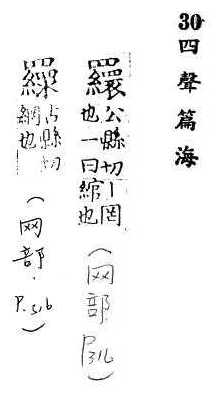 30四聲篇海
公縣切丨罔
也一曰綰也
(网部 P316)
古縣切
網也
(网部. P.316)